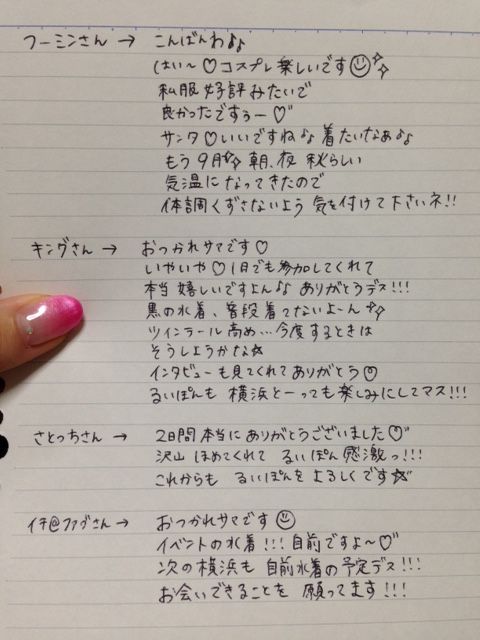 フーミンさん → こんばんわ♪♪
はい〜♡コスプレ楽しいです☺✨
私服好評みたいで
良かったですぅー♡"
サンタ♡いいですね♪♪着たいなぁ♪♪
もう9月✨朝、夜 秋らしい
気温になってきたので
体調くずさないよう気を付けて下さいネ!!
キングさん → おつかれサマです♡
いやいや♡1日でも参加してくれて
本当嬉しいですよん♪♪ありがとうデス!!!
黒の水着、普段着てないよーん✨
ツインテール高め…今度するときは
そうしようかな☆
インタビューも見てくれてありがとう☺
るいぽんも 横浜とーっても楽しみにしてマス!!!
さとっちさん → 2日間本当にありがとうございました☺"
沢山ほめてくれて るいぽん感激っ!!!
これからも るいぽんをよろしくです☆"
イチ@ファグさん → おつかれサマです☺
イベントの水着!!!自前ですよ〜♡"
次の横浜も 自前水着の予定デス!!!
お会いできることを 願ってます!!!